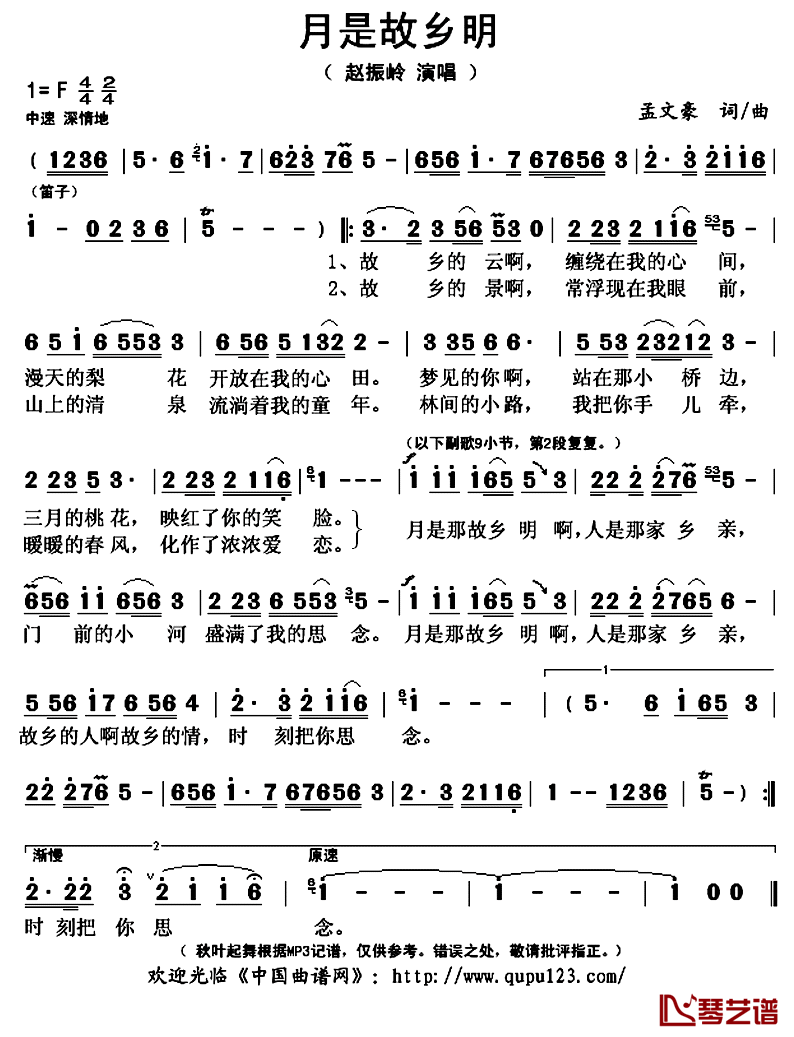 月是故乡明
（ 赵振岭 演唱 ）
1= F 4/4 2/4
中速 深情地
孟文豪 词/曲
( 1236 | 5· 6 2 1· 7 | 623 76 5 - | 656 1· 7 67656 3 | 2· 3 2116 |
（笛子）
1 - 0 2 3 6 | 5 - - - ) |: 3· 2 3 56 53 0 | 2 23 2 1 16 53 5 - |
1、故 乡的 云啊， 缠绕在我的心 间，
2、故 乡的 景啊， 常浮现在我眼 前，
6 5 1 6 553 3 | 6 56 5 132 2 - | 3 35 6 6· | 5 53 23212 3 - |
漫天的梨 花 开放在我的心 田。 梦见的你啊， 站在那小 桥 边，
山上的清 泉 流淌着我的童 年。 林间的小路， 我把你手 儿 牵，
（以下副歌9小节，第2段复复。）
2 23 5 3· | 2 23 2 116 6 1 - | f 1 11 165 5 3 | 22 2 276 53 5 - |
三月的桃 花， 映红了你的笑 脸。
月是那故乡 明 啊，人是那家 乡 亲，
暖暖的春 风， 化作了浓浓爱 恋。
656 11 656 3 | 2 23 6 553 3 5 - | f 1 11 165 5 3 | 22 2 2765 6 - |
门 前的小 河 盛满了我的思 念。 月是那故乡 明 啊，人是那家 乡 亲，
1
5 56 17 6 56 4 | 2· 3 2 116 | 6 1 - - - | ( 5· 6 165 3 |
故乡的人啊故乡的情， 时 刻把你思 念。
22 276 5 - | 656 1· 7 67656 3 | 2· 3 2116 | 1 - - 1236 | 5 - ) :|
渐慢 2 原速
2· 22 3 v 2 1 1 6 | 6 1 - - - | 1 - - - | 1 0 0 |
时 刻把 你 思 念。
（ 秋叶起舞根据MP3记谱，仅供参考。错误之处，敬请批评指正。）
欢迎光临《中国曲谱网》：http://www.qupu123.com/
琴艺谱